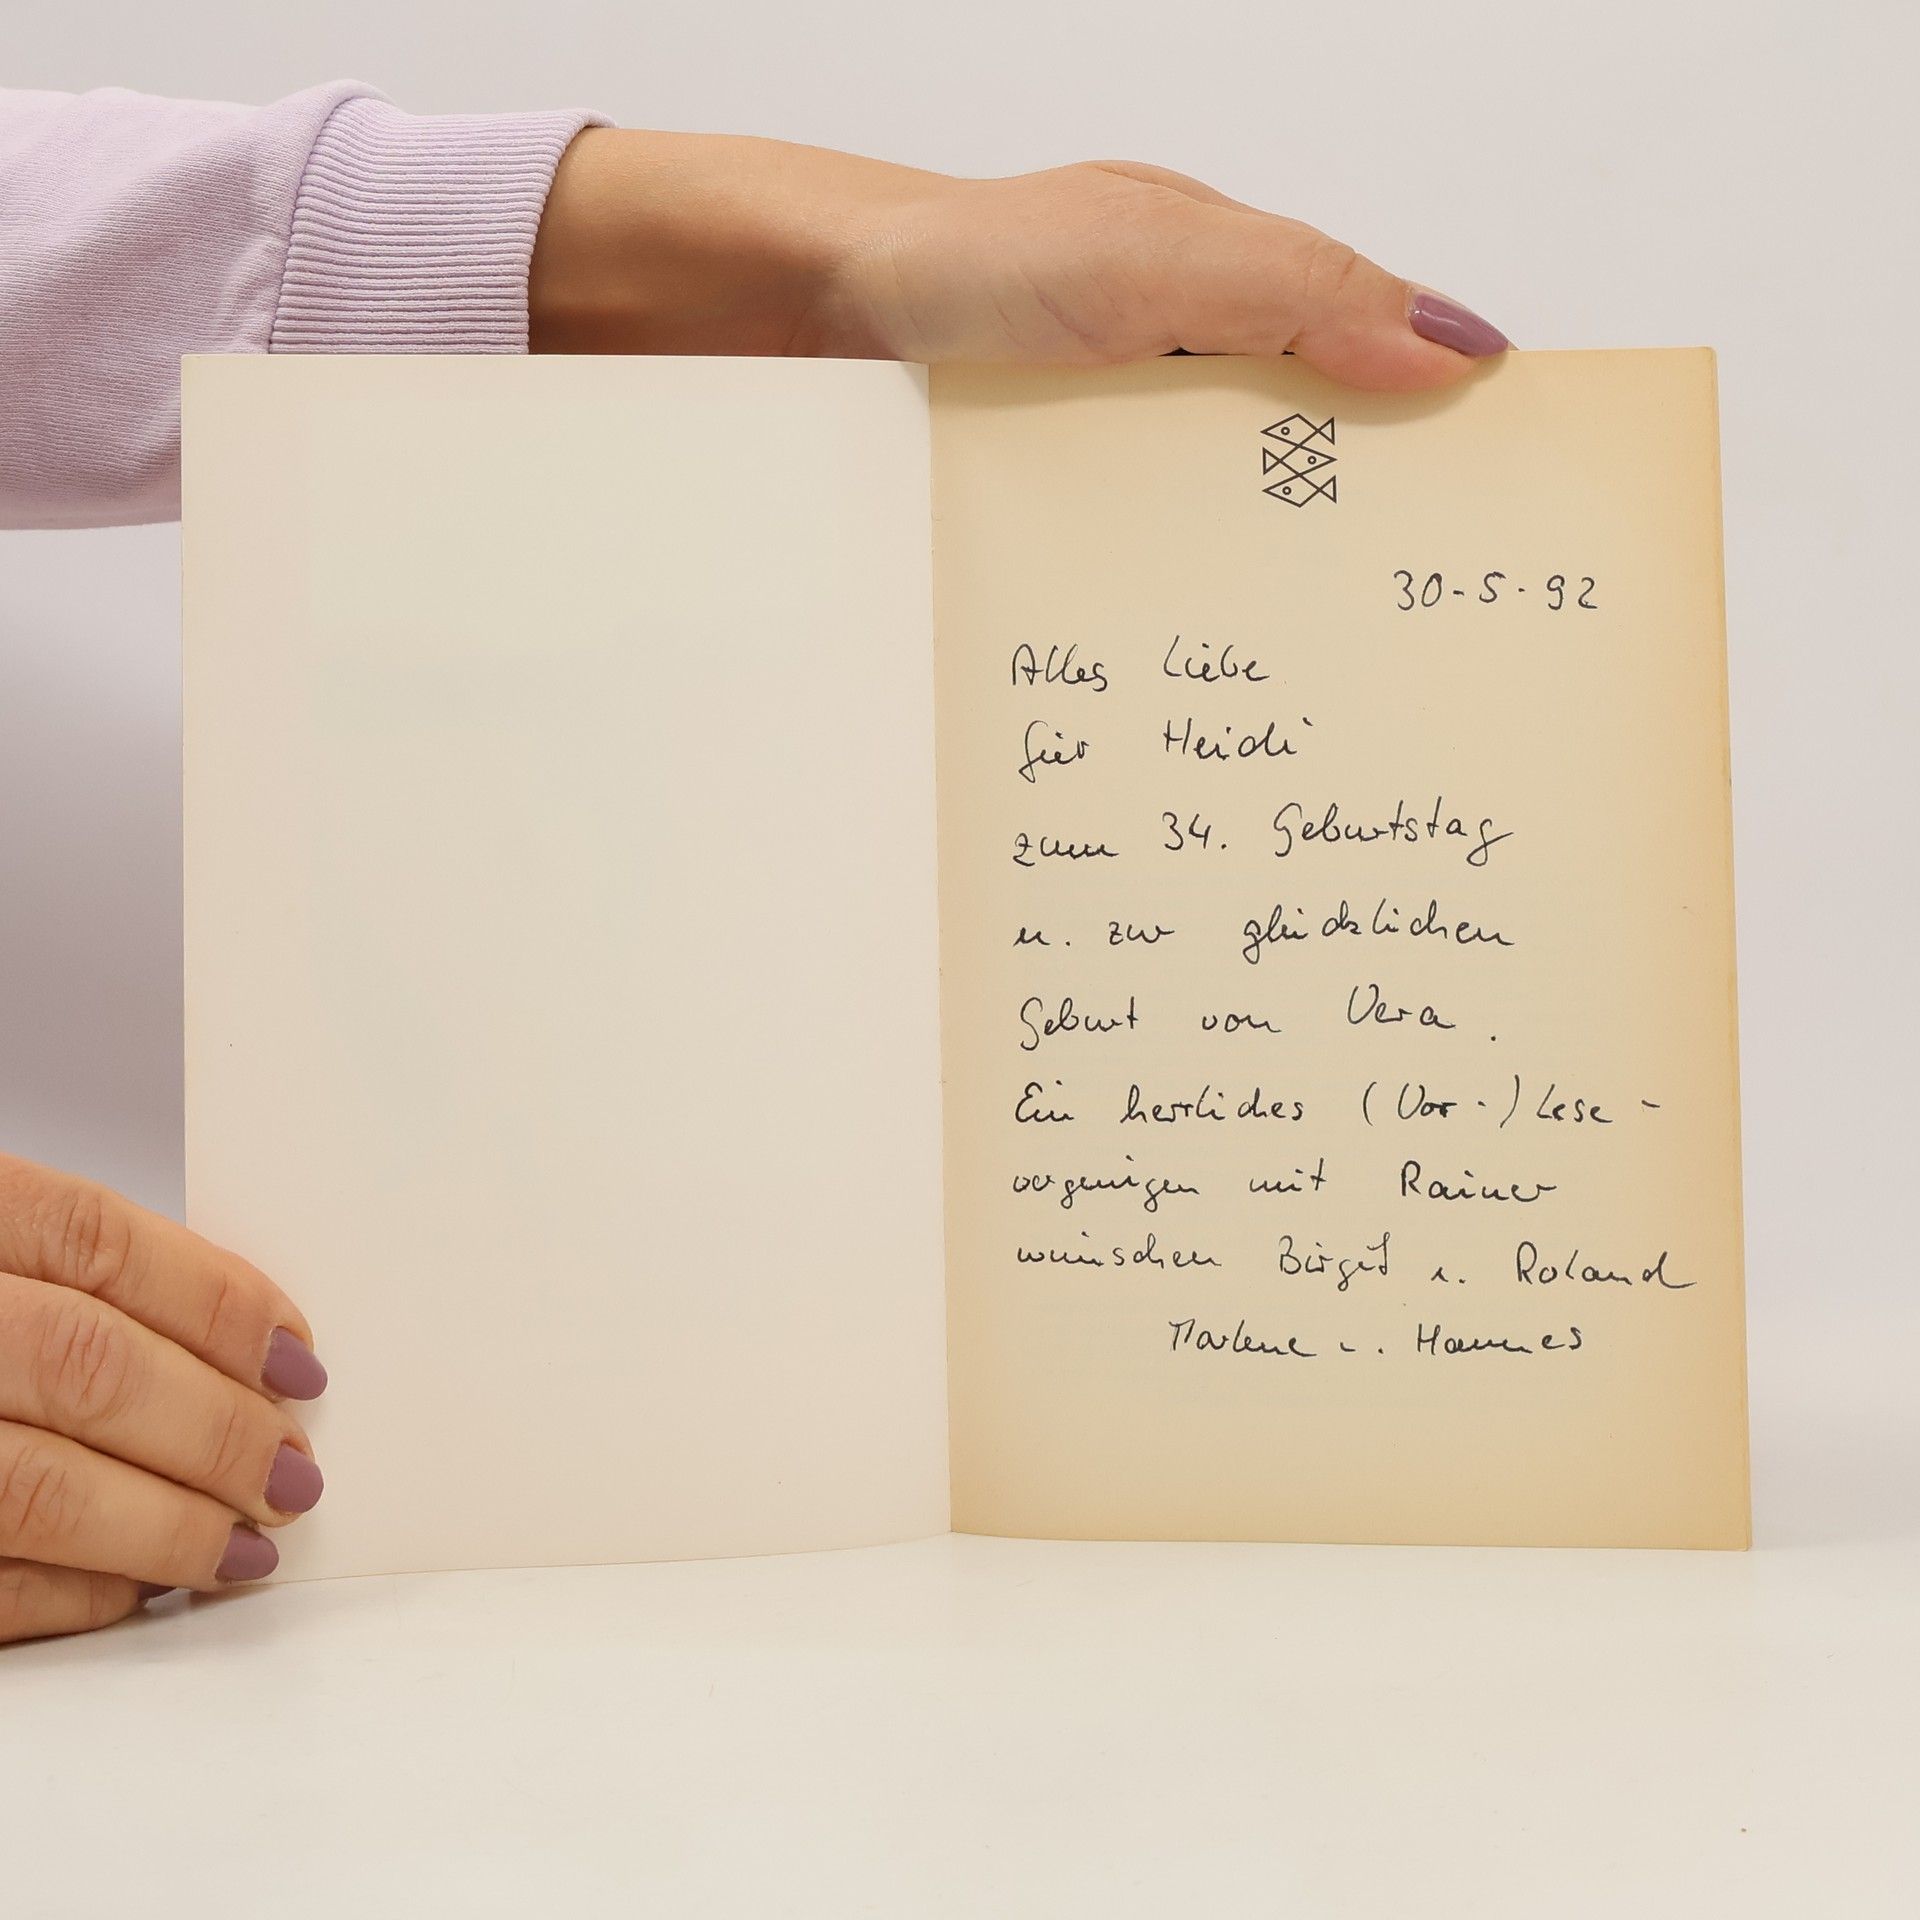 30-5-92
Alles Liebe
für Heidi
zum 34. Geburtstag
u. zur glücklichen
Geburt von Vera.
Ein herrliches (Vor-) Lese-
vergnügen mit Rainer
wünschen Birgit u. Roland
Marlene u. Hannes